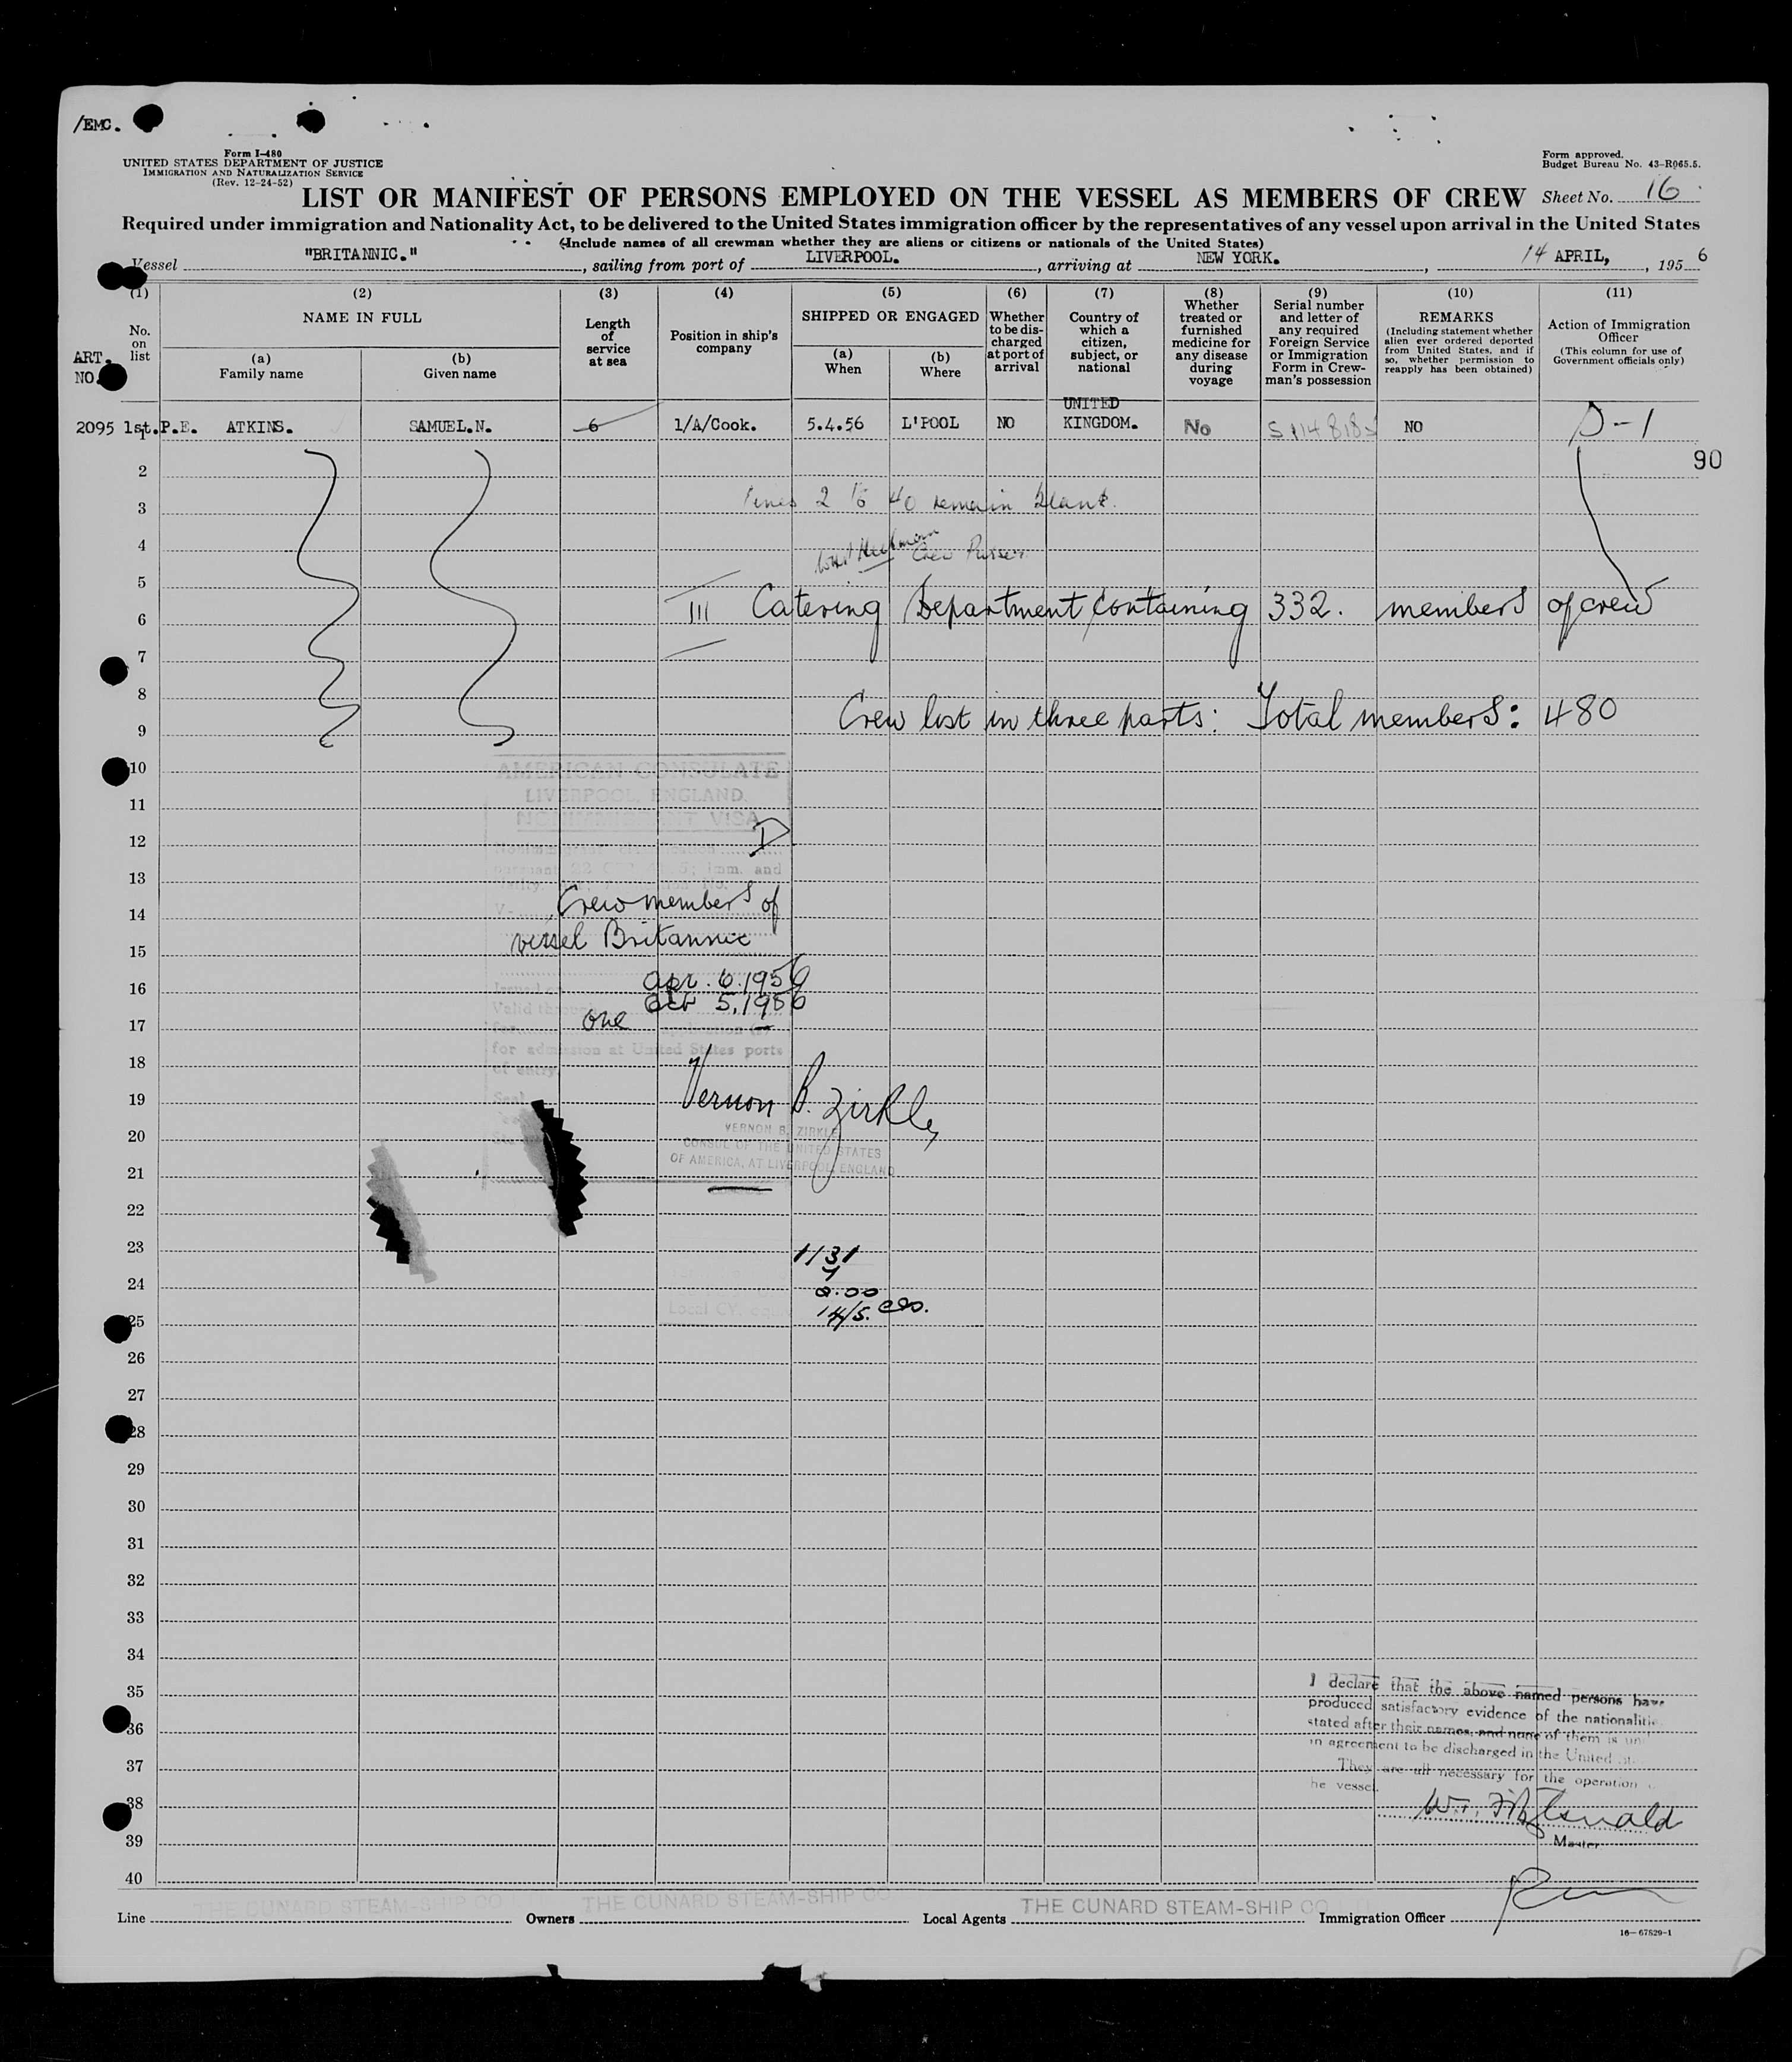 /EMC.
Form I-480
UNITED STATES DEPARTMENT OF JUSTICE
IMMIGRATION AND NATURALIZATION SERVICE
(Rev. 12-24-52)
Form approved.
Budget Bureau No. 43-R065.5.
LIST OR MANIFEST OF PERSONS EMPLOYED ON THE VESSEL AS MEMBERS OF CREW
Sheet No. 16
Required under immigration and Nationality Act, to be delivered to the United States immigration officer by the representatives of any vessel upon arrival in the United States
(Include names of all crewman whether they are aliens or citizens or nationals of the United States)
Vessel "BRITANNIC." , sailing from port of LIVERPOOL. , arriving at NEW YORK. , 14 APRIL, , 1956
(1) (2) (3) (4) (5) (6) (7) (8) (9) (10) (11)
ART. NO.
No. on list
NAME IN FULL
(a) Family name
(b) Given name
Length of service at sea
Position in ship's company
SHIPPED OR ENGAGED
(a) When
(b) Where
Whether to be discharged at port of arrival
Country of which a citizen, subject, or national
Whether treated or furnished medicine for any disease during voyage
Serial number and letter of any required Foreign Service or Immigration Form in Crewman's possession
REMARKS
(Including statement whether alien ever ordered deported from United States, and if so, whether permission to reapply has been obtained)
Action of Immigration Officer
(This column for use of Government officials only)
2095 1st. P.E. ATKINS. SAMUEL.N. 6 1/A/Cook. 5.4.56 L'POOL NO UNITED KINGDOM. No NO D-1
1
90
2
lines 2 to 40 remain blank.
3
4
Crew Purser
5
III Catering Department containing 332. members of crew
6
7
8
Crew list in three parts: Total members: 480
9
AMERICAN CONSULATE
10
LIVERPOOL, ENGLAND.
11
NONIMMIGRANT VISA
12
D
13
Crew members of
14
vessel Britannic
15
Apr. 6. 1956
16
Oct 5, 1956
one
17
for admission at United States ports
of entry.
18
Vernon B. Zirkle
19
VERNON B. ZIRKLE
20
CONSUL OF THE UNITED STATES
OF AMERICA, AT LIVERPOOL, ENGLAND
21
22
23
1131
24
0.00
14/5.
25
26
27
28
29
30
31
32
33
34
35
I declare that the above named persons have
produced satisfactory evidence of the nationalitie
36
stated after their names, and none of them is
in agreement to be discharged in the United
37
They are all necessary for the operation
he vessel.
38
W. Fitzgerald
39
Master.
40
THE CUNARD STEAM-SHIP CO THE CUNARD STEAM-SHIP CO THE CUNARD STEAM-SHIP CO
Line Owners Local Agents Immigration Officer
16-67829-1